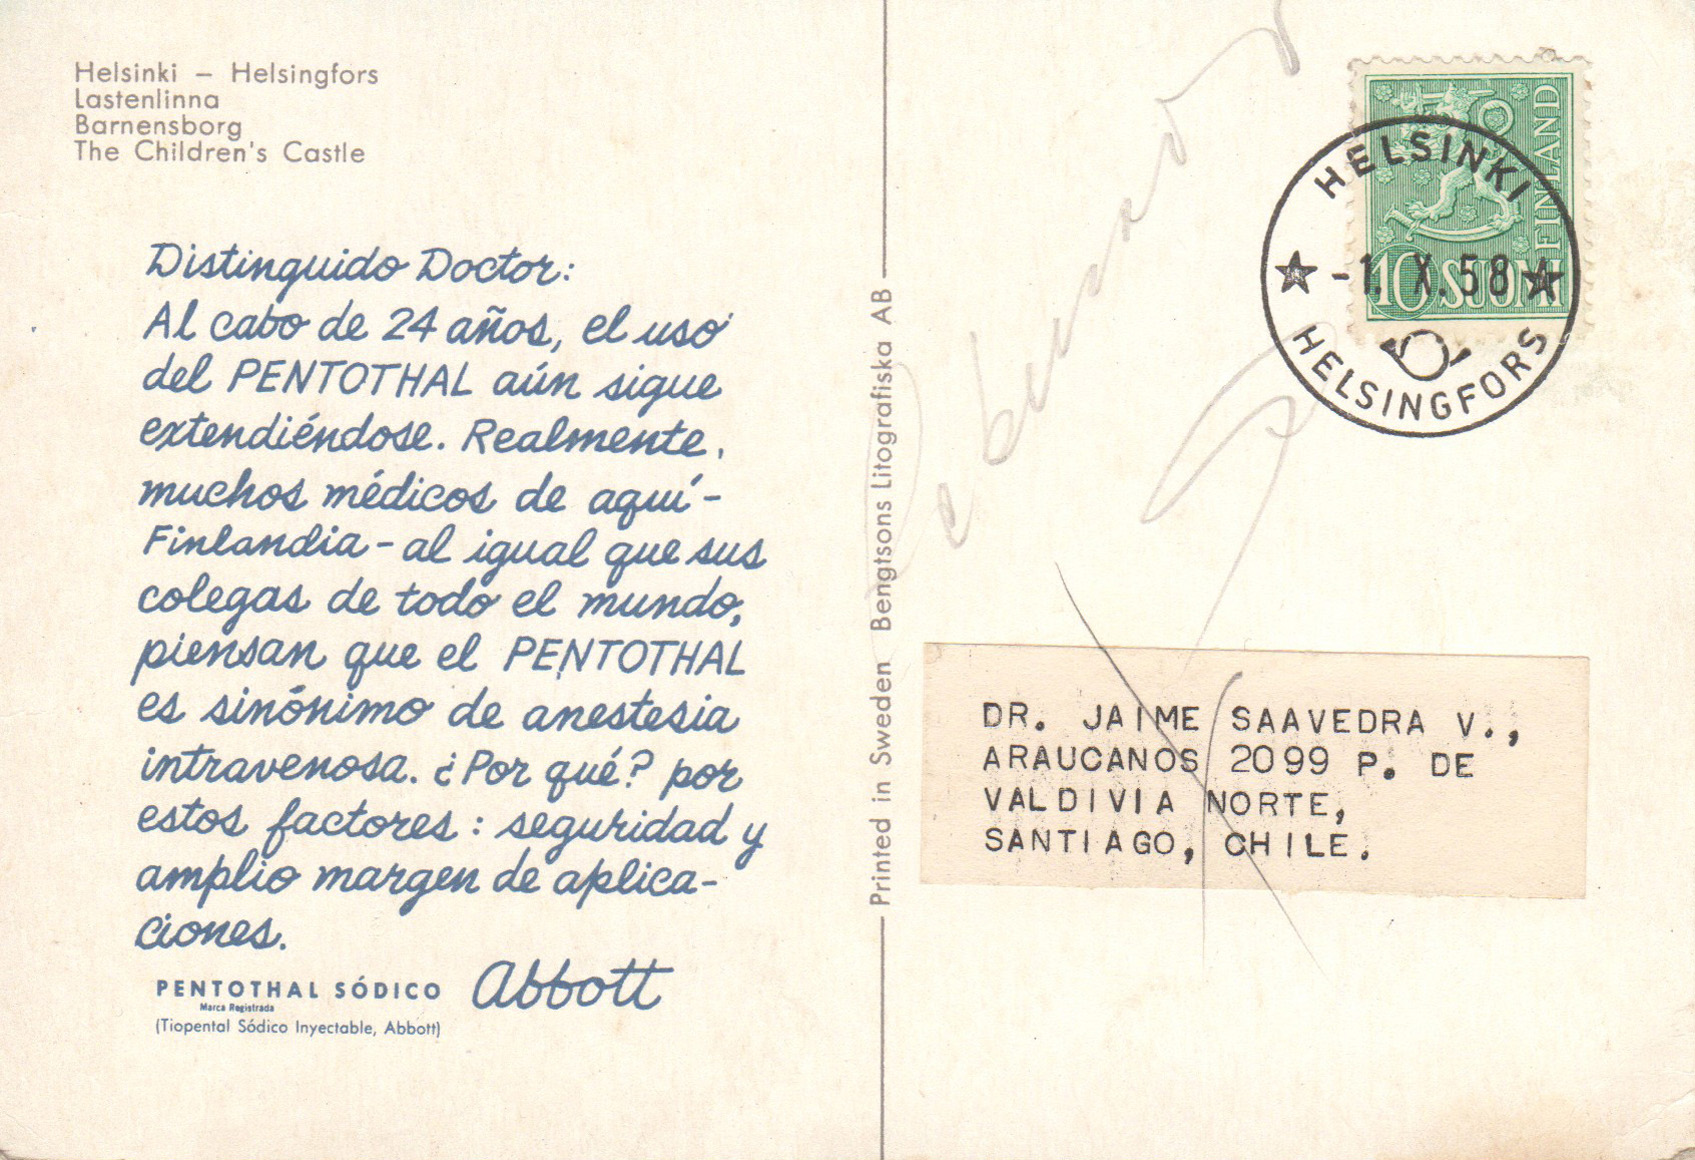 Helsinki – Helsingfors
Lastenlinna
Barnensborg
The Children's Castle
Distinguido Doctor:
Al cabo de 24 años, el uso
del PENTOTHAL aún sigue
extendiéndose. Realmente,
muchos médicos de aquí -
Finlandia - al igual que sus
colegas de todo el mundo,
piensan que el PENTOTHAL
es sinónimo de anestesia
intravenosa. ¿Por qué? por
estos factores: seguridad y
amplio margen de aplica-
ciones.
Abbott
PENTOTHAL SÓDICO
Marca Registrada
(Tiopental Sódico Inyectable, Abbott)
Printed in Sweden Bengtsons Litografiska AB
FINLAND
10 SUOMI
HELSINKI
-1. X. 58
HELSINGFORS
DR. JAIME SAAVEDRA V.,
ARAUCANOS 2099 P. DE
VALDIVIA NORTE,
SANTIAGO, CHILE.